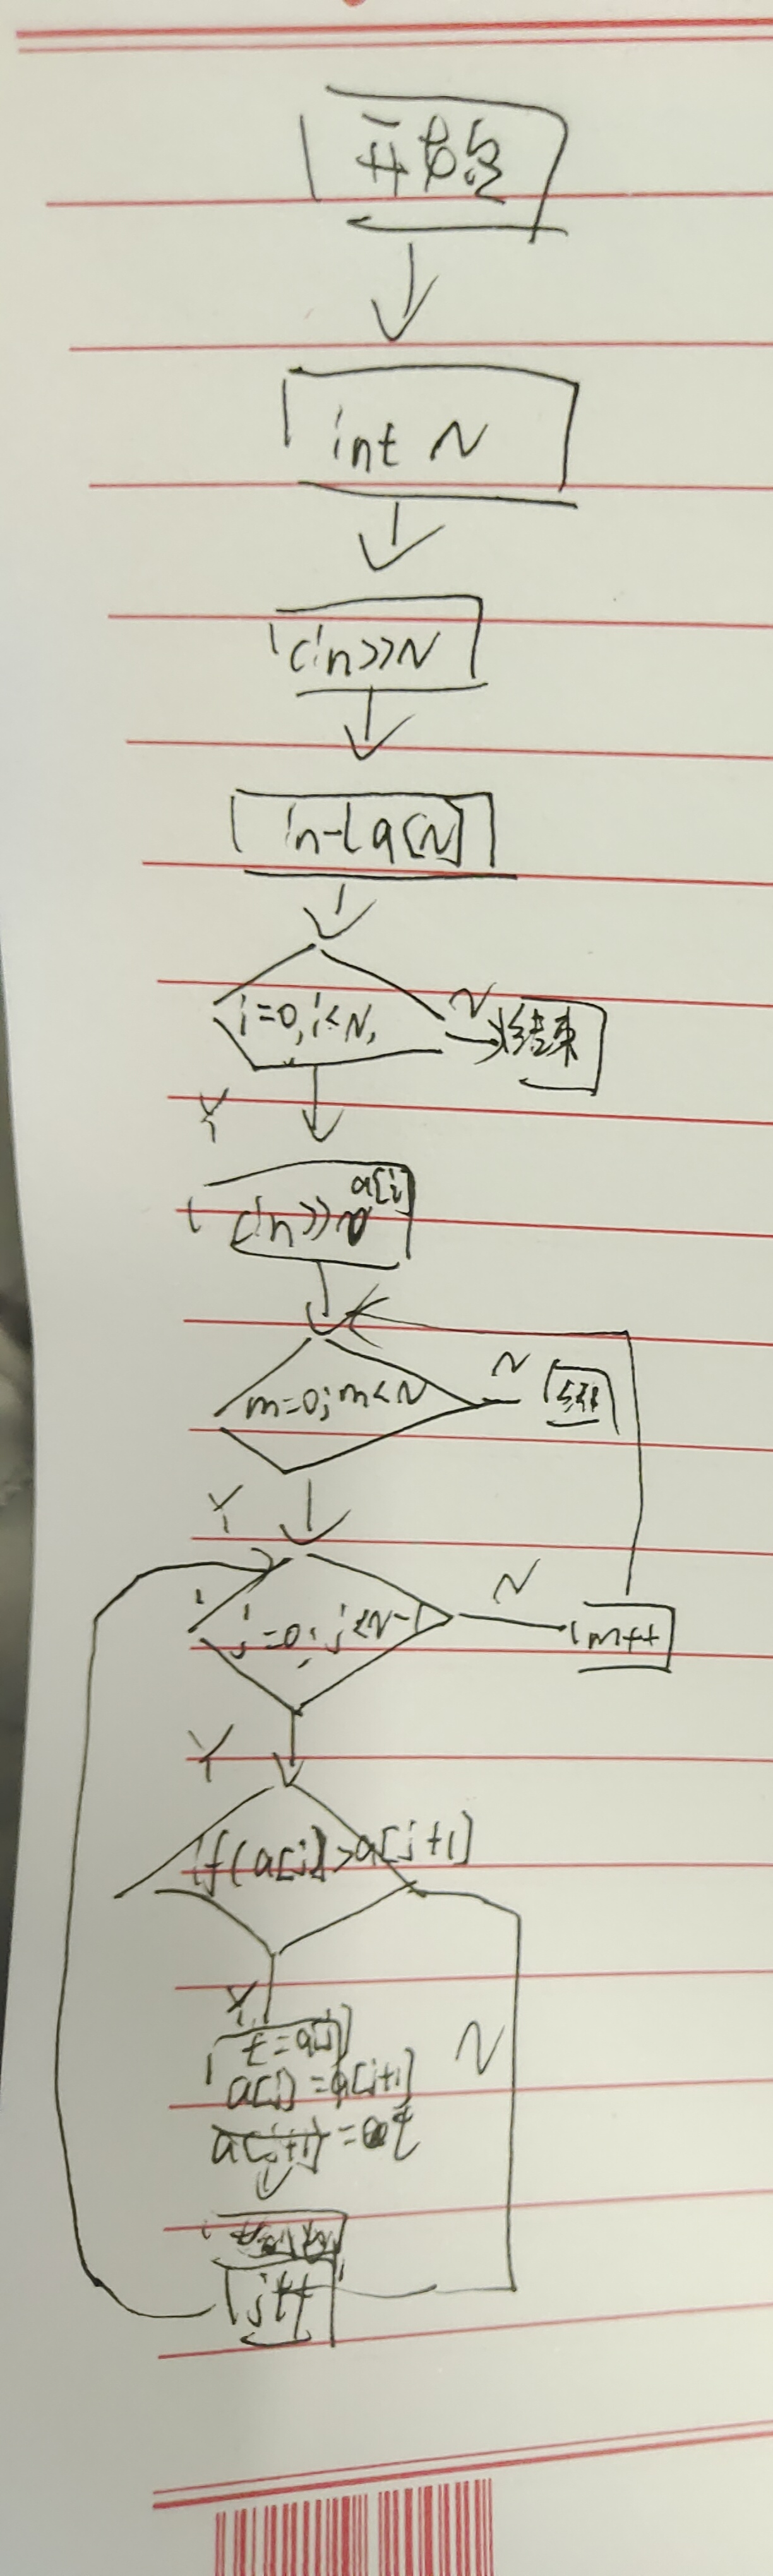 开始
int N
cin>>N
int a[N]
i=0,i<N,
N
结束
Y
a[i]
cin>>
m=0;m<N
N
结束
Y
j=0;j<N-1
N
m++
Y
if(a[j]>a[j+1]
Y
N
t=a[j]
a[j]=a[j+1]
a[j+1]=t
j++